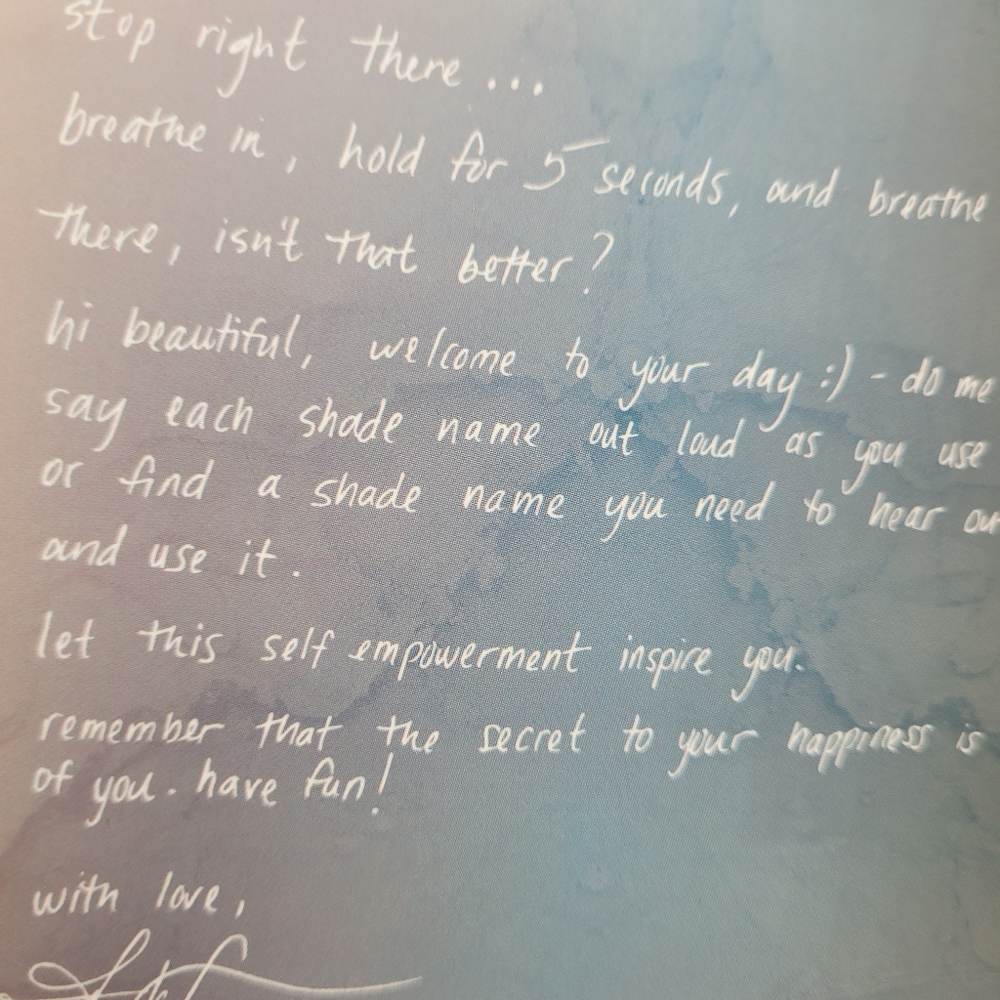 stop right there...
breathe in, hold for 5 seconds, and breathe
there, isn't that better?
hi beautiful, welcome to your day :) - do me
say each shade name out loud as you use
or find a shade name you need to hear
and use it.
let this self empowerment inspire you.
remember that the secret to your happiness is
of you. have fun!
with love,